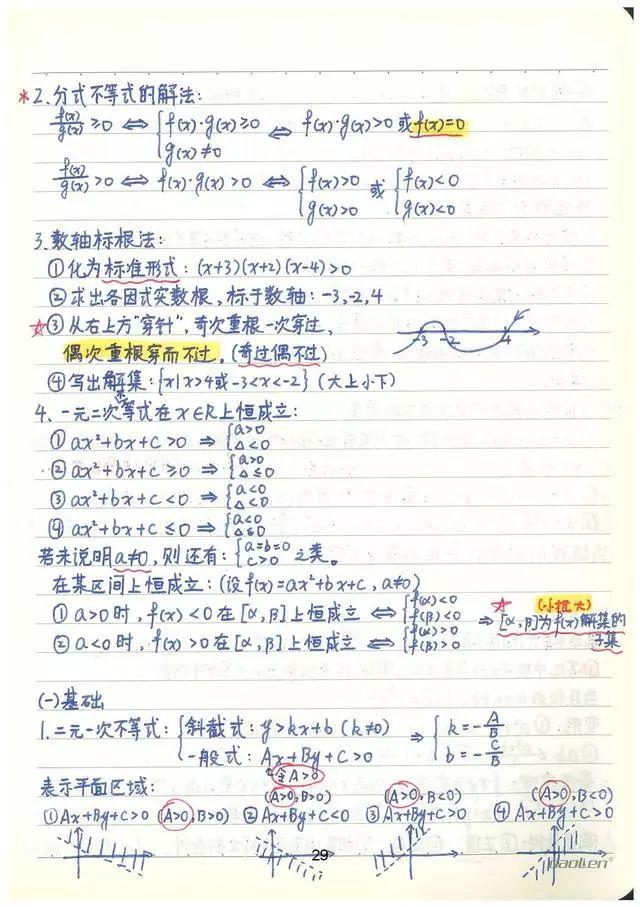 *2.分式不等式的解法:
f(x)/g(x)≥0 ⇔ {f(x)·g(x)≥0 g(x)≠0 ⇔ f(x)·g(x)>0或f(x)=0
f(x)/g(x)>0 ⇔ f(x)·g(x)>0 ⇔ {f(x)>0 g(x)>0 或 {f(x)<0 g(x)<0
3.数轴标根法:
①化为标准形式:(x+3)(x+2)(x-4)>0
②求出各因式实数根,标于数轴:-3,-2,4
☆③从右上方"穿针",奇次重根一次穿过,
偶次重根穿而不过。(奇过偶不过)
-3 -2 4
④写出解集:{x|x>4或-3<x<-2}(大上小下)
4.一元二次等式在x∈R上恒成立:
①ax²+bx+c>0 ⇒ {a>0 △<0
②ax²+bx+c≥0 ⇒ {a>0 △≤0
③ax²+bx+c<0 ⇒ {a<0 △<0
④ax²+bx+c≤0 ⇒ {a<0 △≤0
若未说明a≠0,则还有:{a=b=0 c>0 之类。
在某区间上恒成立:(设f(x)=ax²+bx+c,a≠0)
①a>0时,f(x)<0在[α,β]上恒成立 ⇔ {f(α)<0 f(β)<0
②a<0时,f(x)>0在[α,β]上恒成立 ⇔ {f(α)>0 f(β)>0
⇒ ☆
[α,β]为f(x)解集的
子集
(一)基础
1.二元一次不等式:{斜截式:y>kx+b(k≠0) 一般式:Ax+By+C>0 ⇒ {k=-A/B b=-C/B
令A>0
表示平面区域:
①Ax+By+C>0(A>0,B>0)
②Ax+By+C<0(A>0,B>0)
③Ax+By+C>0(A>0,B<0)
④Ax+By+C>0(A>0,B<0)
29